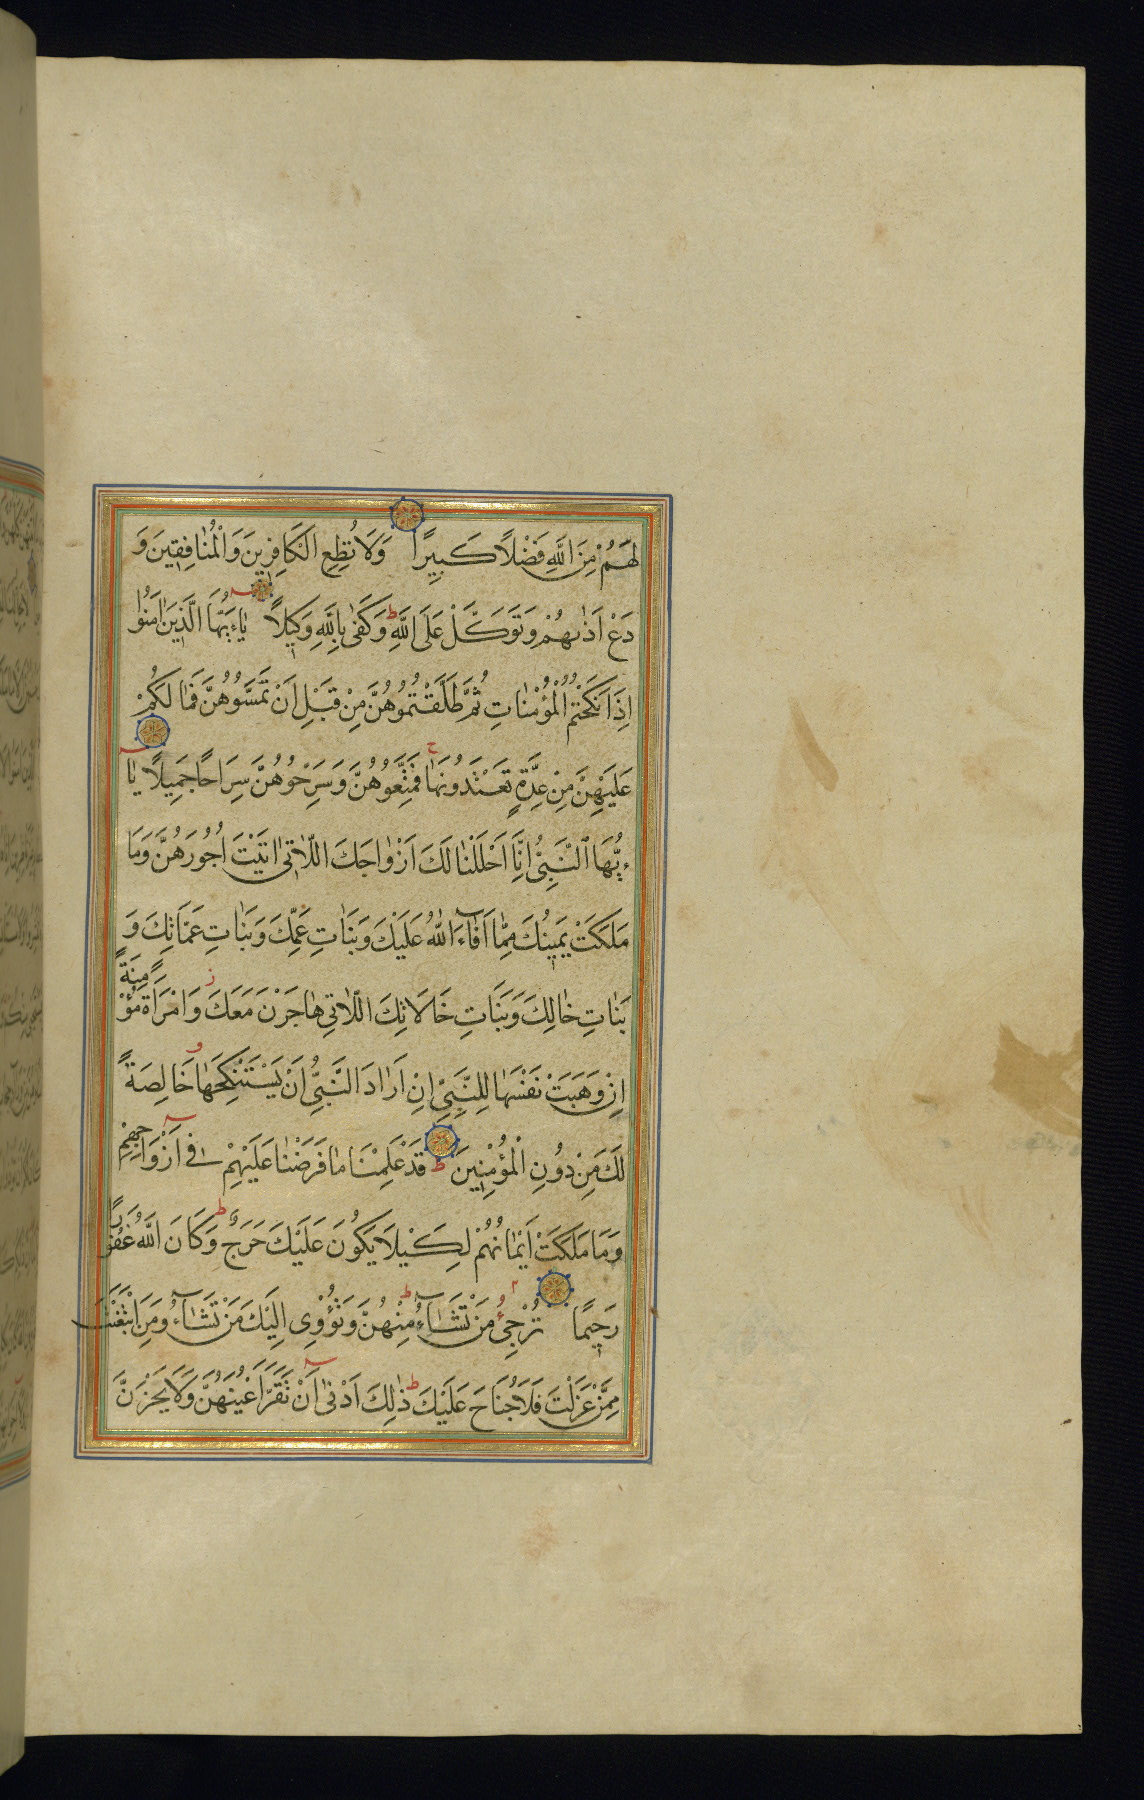 لَهُمْ مِنَ اللّٰهِ فَضْلًا كَبِيرًا وَلَا تُطِعِ الْكَافِرِينَ وَالْمُنَافِقِينَ وَ
دَعْ اَذٰىهُمْ وَتَوَكَّلْ عَلَى اللّٰهِ ط وَكَفٰى بِاللّٰهِ وَكِيلًا يٰٓاءَيُّهَا الَّذِينَ اٰمَنُوا
اِذَا نَكَحْتُمُ الْمُؤْمِنَاتِ ثُمَّ طَلَّقْتُمُوهُنَّ مِنْ قَبْلِ اَنْ تَمَسُّوهُنَّ فَمَا لَكُمْ
عَلَيْهِنَّ مِنْ عِدَّةٍ تَعْتَدُّونَهَا ج فَمَتِّعُوهُنَّ وَسَرِّحُوهُنَّ سَرَاحًا جَمِيلًا يٰٓا
ءَيُّهَا النَّبِىُّ اِنَّا اَحْلَلْنَا لَكَ اَزْوَاجَكَ اللَّاتِى اٰتَيْتَ اُجُورَهُنَّ وَمَا
مَلَكَتْ يَمِينُكَ مِمَّا اَفَآءَ اللّٰهُ عَلَيْكَ وَبَنَاتِ عَمِّكَ وَبَنَاتِ عَمَّاتِكَ وَ
بَنَاتِ خَالِكَ وَبَنَاتِ خَالَاتِكَ اللَّاتِى هَاجَرْنَ مَعَكَ ز وَامْرَاَةً مُؤْمِنَةً
اِنْ وَهَبَتْ نَفْسَهَا لِلنَّبِىِّ اِنْ اَرَادَ النَّبِىُّ اَنْ يَسْتَنْكِحَهَا خَالِصَةً
لَكَ مِنْ دُونِ الْمُؤْمِنِينَ ط قَدْ عَلِمْنَا مَا فَرَضْنَا عَلَيْهِمْ فِى اَزْوَاجِهِمْ
وَمَا مَلَكَتْ اَيْمَانُهُمْ لِكَيْلَا يَكُونَ عَلَيْكَ حَرَجٌ ط وَكَانَ اللّٰهُ غَفُورًا
رَحِيمًا تُرْجِئُ مَنْ تَشَآءُ مِنْهُنَّ وَتُؤْوِى اِلَيْكَ مَنْ تَشَآءُ ط وَمَنِ ابْتَغَيْتَ
مِمَّنْ عَزَلْتَ فَلَا جُنَاحَ عَلَيْكَ ط ذٰلِكَ اَدْنٰى اَنْ تَقَرَّ اَعْيُنُهُنَّ وَلَا يَحْزَنَّ